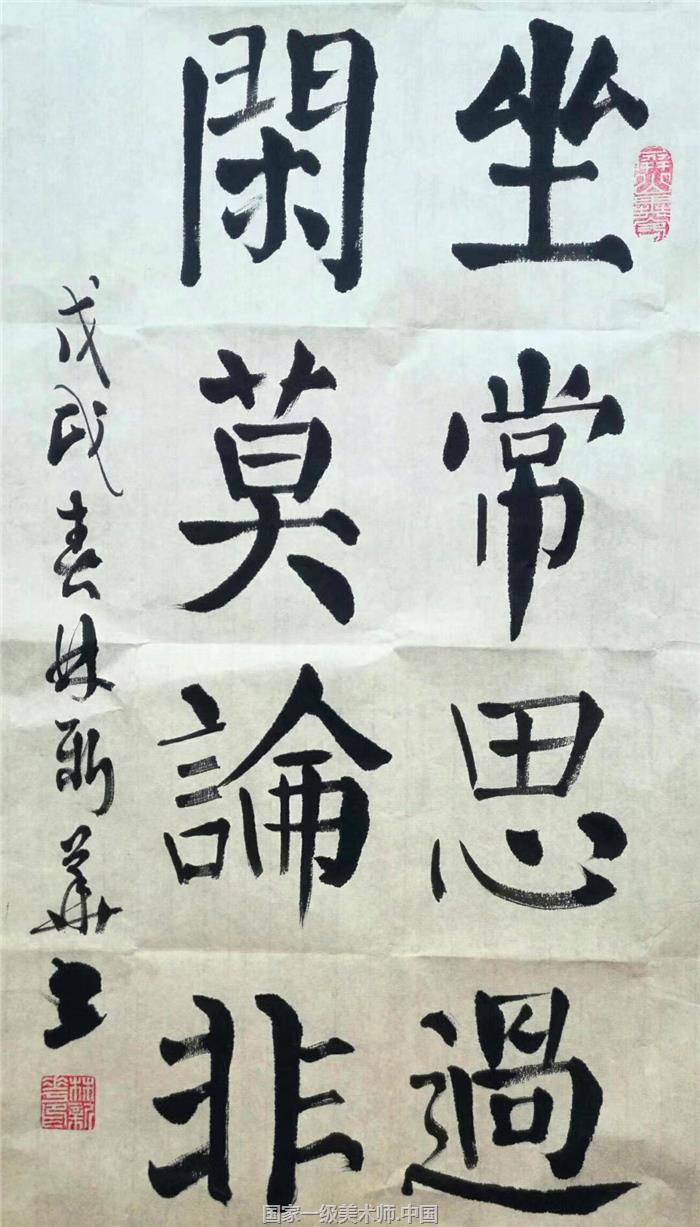 坐常思過
閑莫論非
戊戌春林新華書
林新華印
国家一级美术师.中国